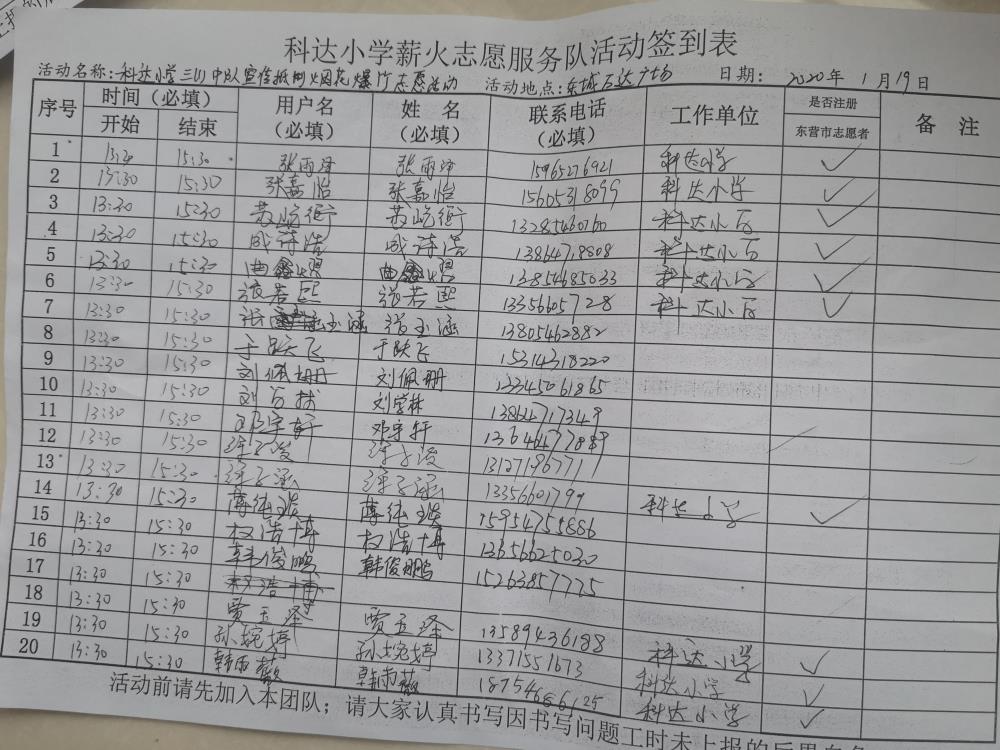 科达小学薪火志愿服务队活动签到表
活动名称：科达小学三(1)中队宣传抵制烟花爆竹志愿活动 活动地点：东城万达广场 日期： 2020年 1月 19日
序号 时间（必填） 用户名（必填） 姓 名（必填） 联系电话（必填） 工作单位 是否注册东营市志愿者 备 注
开始 结束
1 15:30 张雨泽 张雨泽 15965276921 科达小学 ✓
2 13:30 15:30 张嘉怡 张嘉怡 15605318099 科达小学 ✓
3 13:30 15:30 13285460160 科达小学 ✓
4 13:30 15:30 成诗浩 成诗浩 13864719808 科达小学 ✓
5 13:30 15:30 13854685033 科达小学 ✓
6 13:30 15:30 张若熙 张若熙 13356605728 科达小学 ✓
7 13:30 15:30 张玉涵 张玉涵 13805462882
8 13:30 15:30 于跃飞 于跃飞 15314318220
9 13:30 15:30 刘佩珊 刘佩珊 13345061865
10 13:30 15:30 刘学林 刘学林 13864717349
11 13:30 15:30 邓宇轩 邓宇轩
12 13:30 15:30 徐子浚 徐子浚 13127196771
13 13:30 15:30 徐子涵 徐子涵 1335660179
14 13:30 15:30 15954755886 科达小学 ✓
15 13:30 15:30 权浩博 权浩博 13656625030
16 13:30 15:30 韩俊鹏 韩俊鹏 15263857725
17 13:30 15:30
18 13:30 15:30 贾玉泽 贾玉泽 13589436188 科达小学 ✓
19 13:30 15:30 孙婉婷 孙婉婷 13371551673 科达小学 ✓
20 13:30 15:30 韩雨薇 韩雨薇 18754686125 科达小学 ✓
活动前请先加入本团队；请大家认真书写因书写问题工时未上报的后果自